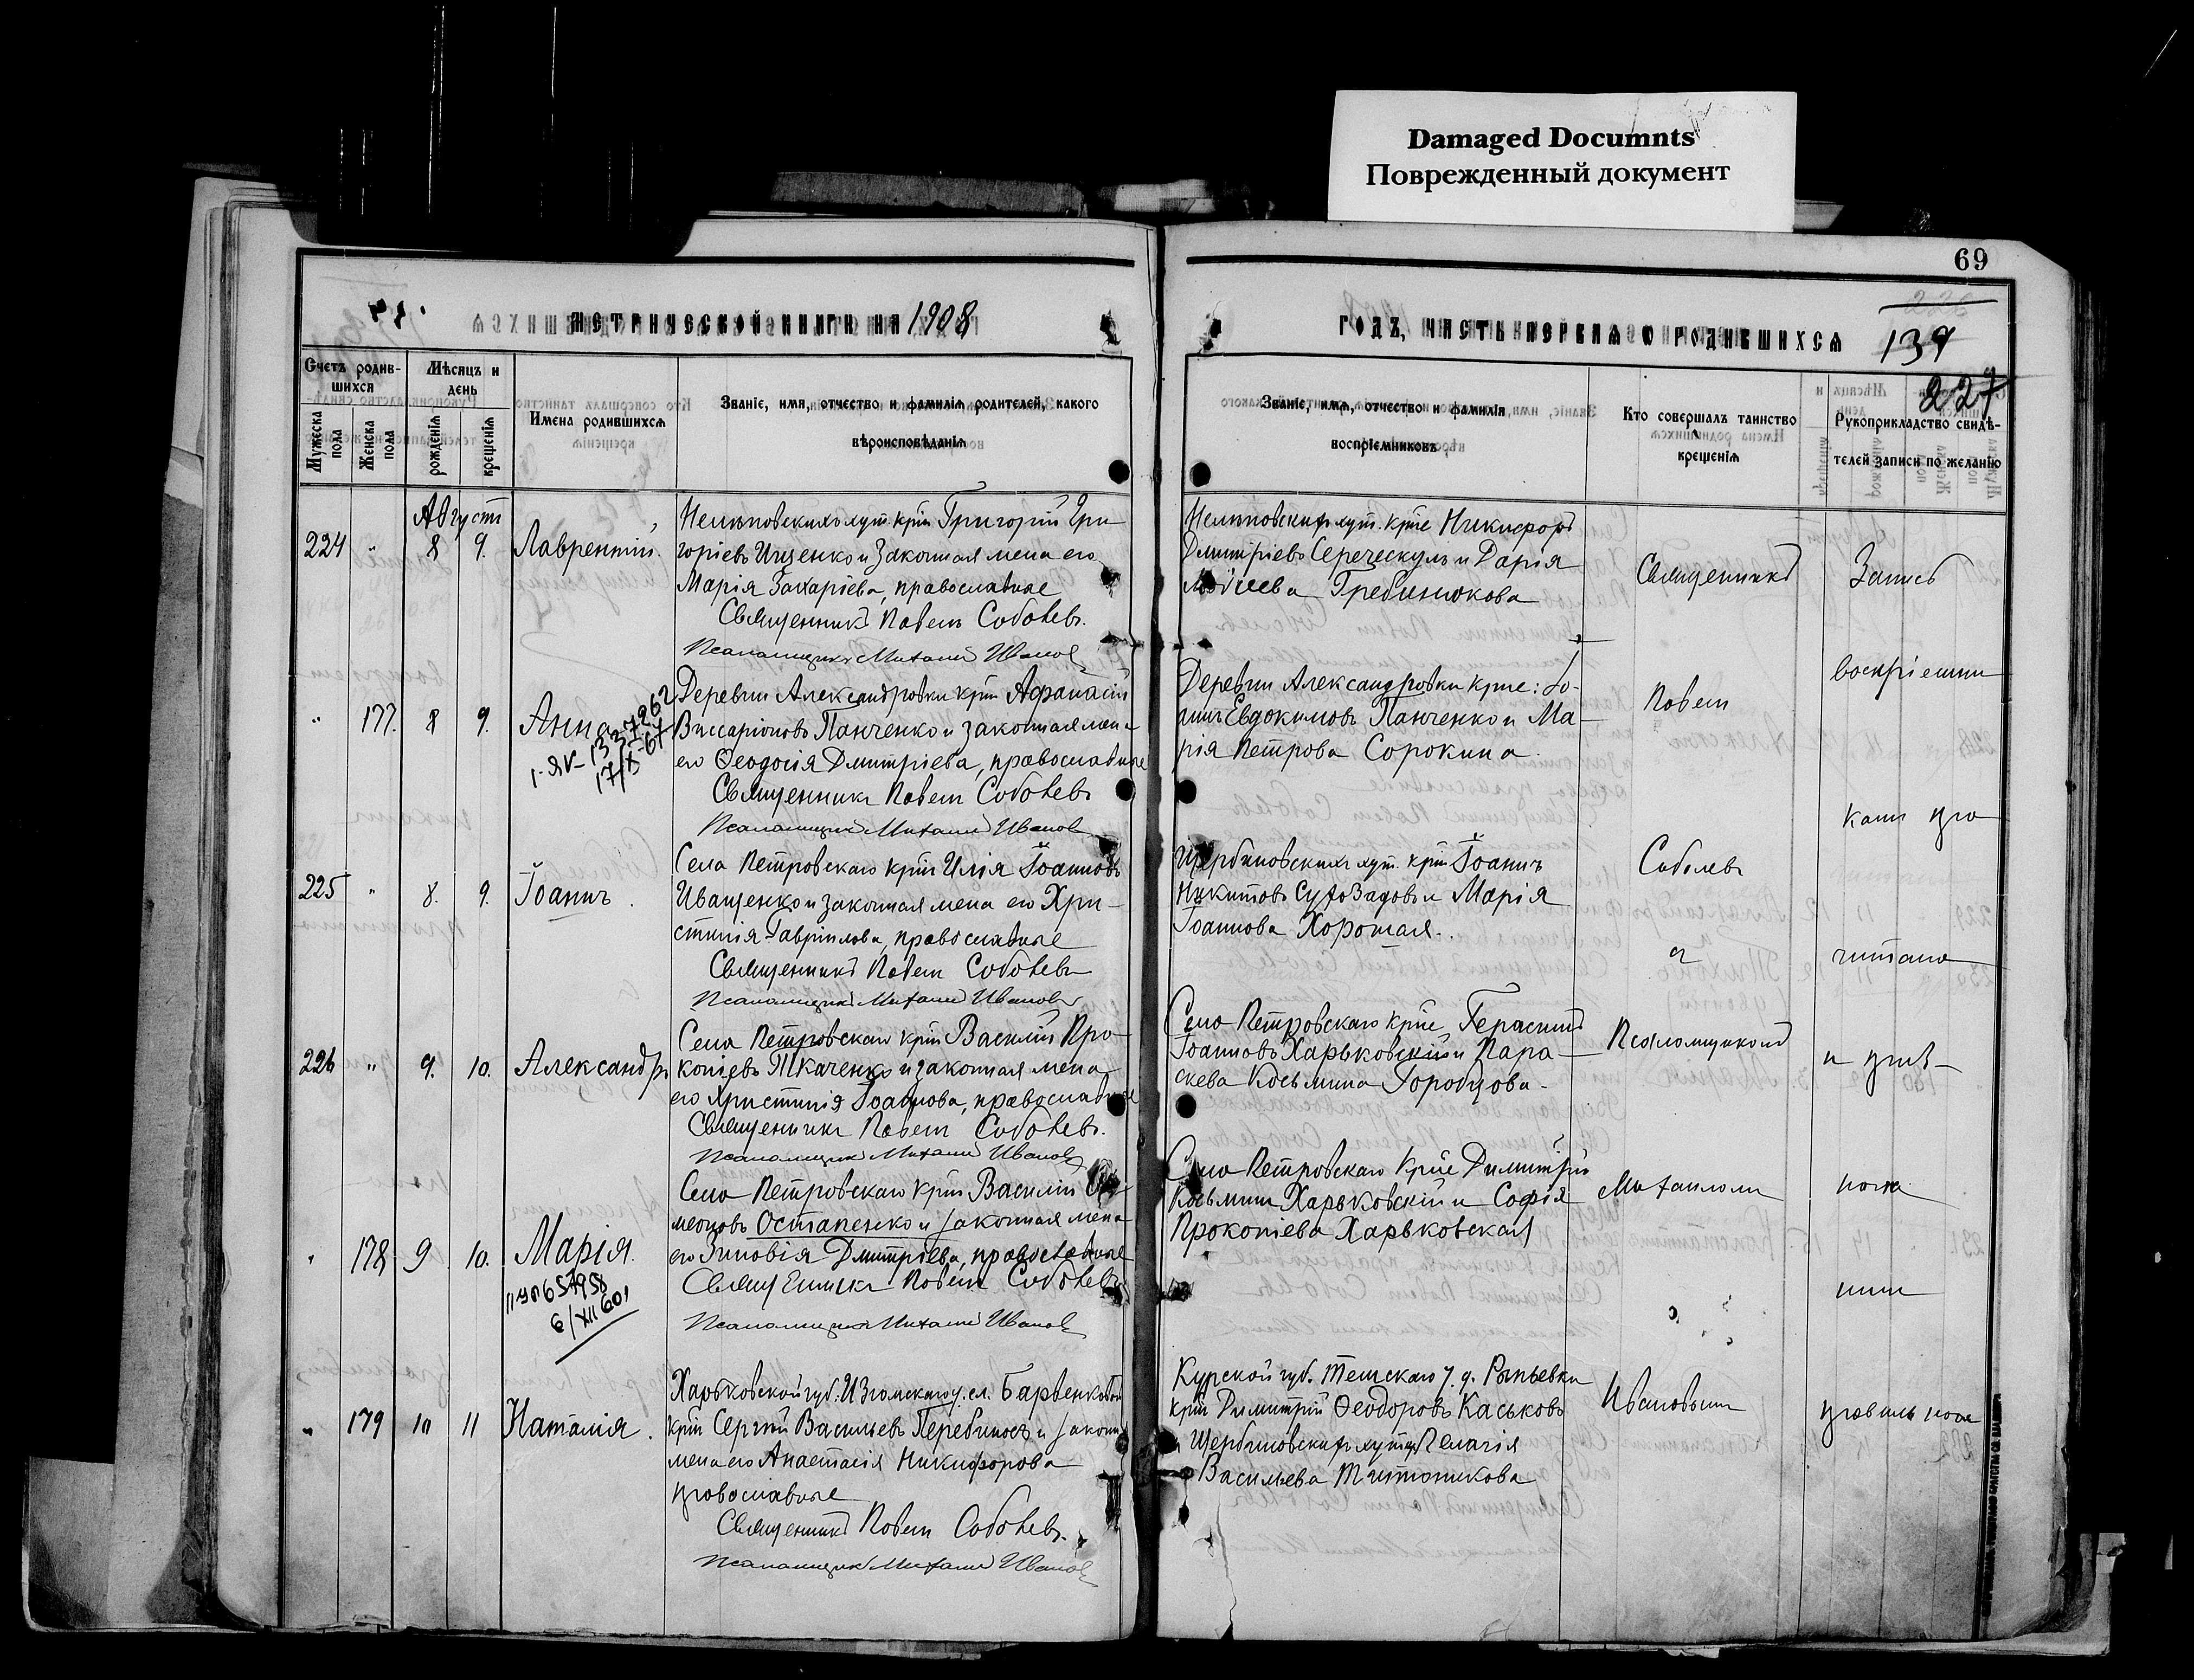 Damaged Documnts
Поврежденный документ
69
МЕТРИЧЕСКОЙ КНИГИ НА 1908
ГОДЪ, ЧАСТЬ ПЕРВАЯ О РОДИВШИХСЯ
139
227
Счетъ родив-
шихся
Мужеска пола
Женска пола
Мѣсяцъ и
день
рожденія
крещенія
Имена родившихся
Званіе, имя, отчество и фамилія родителей, какого
вѣроисповѣданія
Званіе, имя, отчество и фамилія
воспріемниковъ
Кто совершалъ таинство
крещенія
Рукоприкладство свидѣ-
телей записи по желанію
Августъ
224 " 8 9. Лаврентій.
хут. крⷭ Григорій Гри-
горіевъ Ищенко и законная жена его
Марія Захаріева, православные
Священникъ Павелъ Соболевъ.
Псаломщикъ Михаилъ Ивановъ
хут. кр-не Никифоръ
Дмитріевъ и Дарія
Гребенюкова
" 177. 8 9. Анна
17/X-67
Деревни Александровки крⷭ Афанасій
Виссаріоновъ Панченко и законная жена
его Ѳеодосія Дмитріева, православные
Священникъ Павелъ Соболевъ
Псаломщикъ Михаилъ Ивановъ
Деревни Александровки кр-не: Іо-
аннъ Евдокимовъ Панченко и Ма-
рія Петрова Сорокина.
225 " 8. 9. Іоаннъ.
Села Петровскаго крⷭ Илія Іоанновъ
Иващенко и законная жена его Хри-
стинія Гавріилова, православные
Священникъ Павелъ Соболевъ
Псаломщикъ Михаилъ Ивановъ
Щербиновскихъ хут. крⷭ Іоаннъ
Никитовъ и Марія
Іоаннова Хорошая.
226 " 9. 10. Александръ
Села Петровскаго крⷭ Василій Про-
копіевъ Ткаченко и законная жена
его Христинія Іоаннова, православные
Священникъ Павелъ Соболевъ.
Псаломщикъ Михаилъ Ивановъ
Села Петровскаго кр-не Герасимъ
Іоанновъ Харьковскій и Пара-
скева Косьмина Городцова.
" 178 9 10. Марія.
6/XII 60
Села Петровскаго крⷭ Василій
Остапенко и законная жена
его Зиновія Дмитріева, православные
Священникъ Павелъ Соболевъ
Псаломщикъ Михаилъ Ивановъ
Села Петровскаго кр-не Димитрій
Косьминъ Харьковскій и Софія
Прокопіева Харьковская
" 179 10 11 Наталія.
Харьковской губ. Изюмскаго у. сл. Барвенковой
крⷭ Сергій Васильевъ Перебиносъ и законн.
жена его Анастасія Никифорова
православные
Священникъ Павелъ Соболевъ.
Псаломщикъ Михаилъ Ивановъ
Курской губ. у. д.
крⷭ Димитрій Ѳеодоровъ Каськовъ
и Щербиновскихъ хут. Пелагія
Васильева
Священникъ
Павелъ
Соболевъ
и
Псаломщикомъ
Михаиломъ
Ивановымъ
Запись
воспріемни
камъ про
читана
и